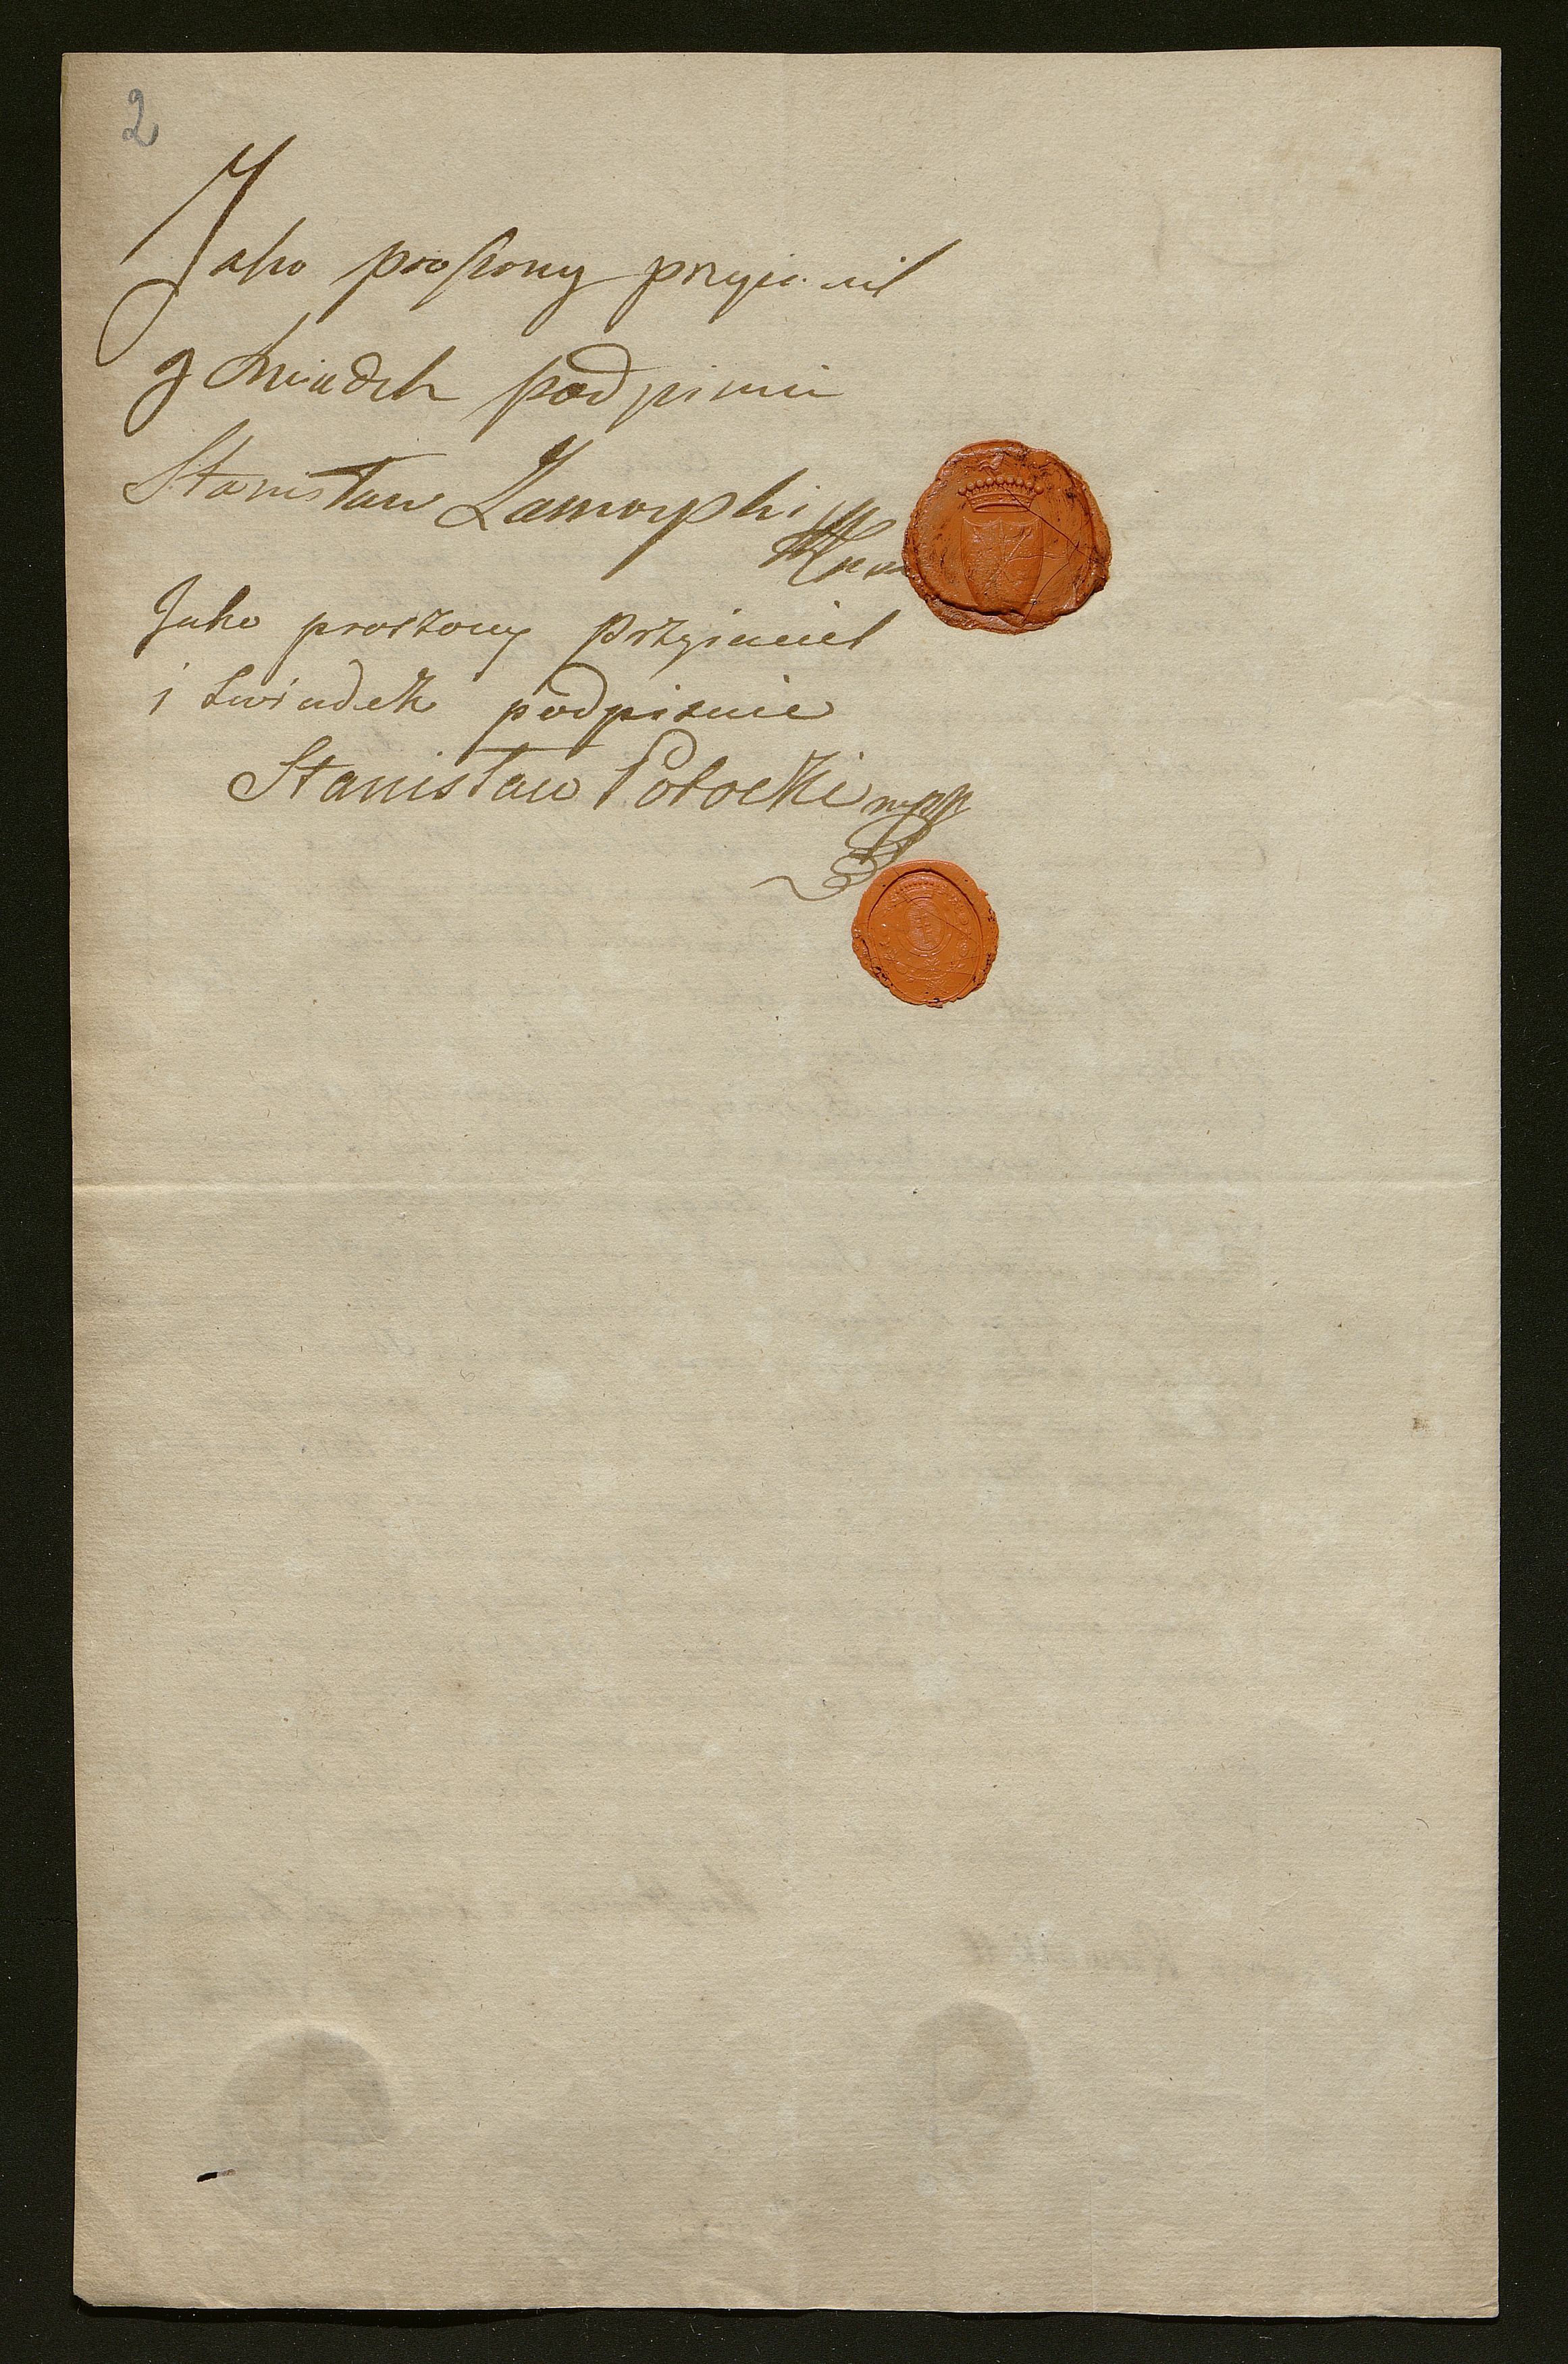 2
Jako proszony przyiaciel
y swiadek podpisuie
Stanisław Zamoyski
Jako proszony przyiaciel
i swiadek podpisuie
Stanisław Potocki mpp